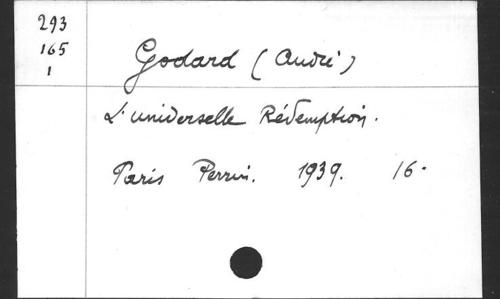 293
165
1
Godard (André)
L'universelle Rédemption.
Paris Perrin. 1939. 16°